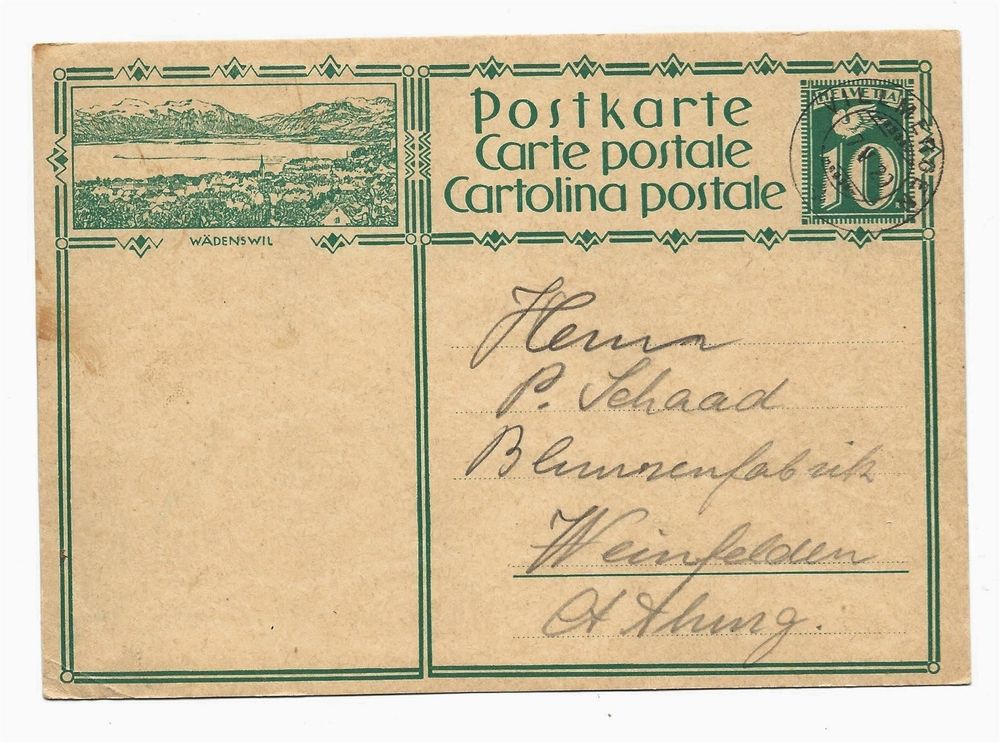 WÄDENSWIL
Postkarte
Carte postale
Cartolina postale
HELVETIA
10
Herrn
P. Schaad
Blumenfabrik
Weinfelden
Ct Thurg.